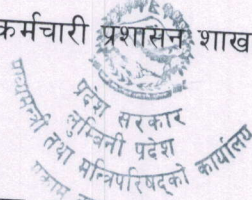 कर्मचारी प्रशासन शाख
प्रदेश सरकार
लुम्बिनी प्रदेश
मुख्यमन्त्री तथा मन्त्रिपरिषद्को कार्यालय